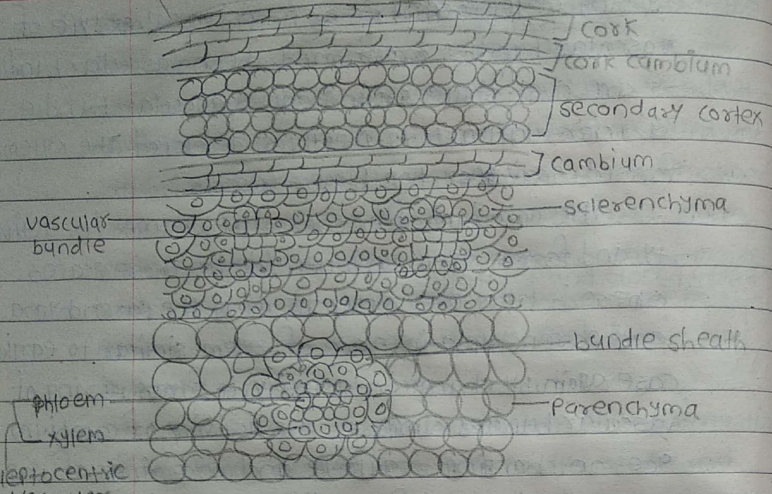 cork
cork cambium
secondary cortex
cambium
sclerenchyma
vascular
bundle
bundle sheath
phloem
parenchyma
xylem
leptocentric